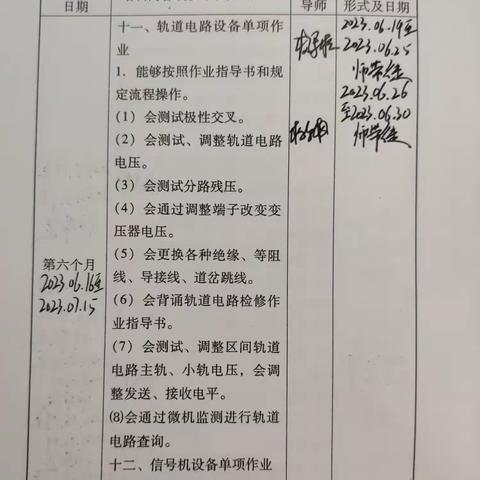 日期
导师
形式及日期
十一、轨道电路设备单项作
业
1．能够按照作业指导书和规
定流程操作。
（1）会测试极性交叉。
（2）会测试、调整轨道电路
电压。
（3）会测试分路残压。
（4）会通过调整端子改变变
压器电压。
（5）会更换各种绝缘、等阻
线、导接线、道岔跳线。
（6）会背诵轨道电路检修作
业指导书。
（7）会测试、调整区间轨道
电路主轨、小轨电压，会调
整发送、接收电平。
⑻会通过微机监测进行轨道
电路查询。
十二、信号机设备单项作业
第六个月
2023.06.16至
2023.07.15
2023.06.19至
2023.06.25
师带徒
2023.06.26
至2023.06.30
师带徒